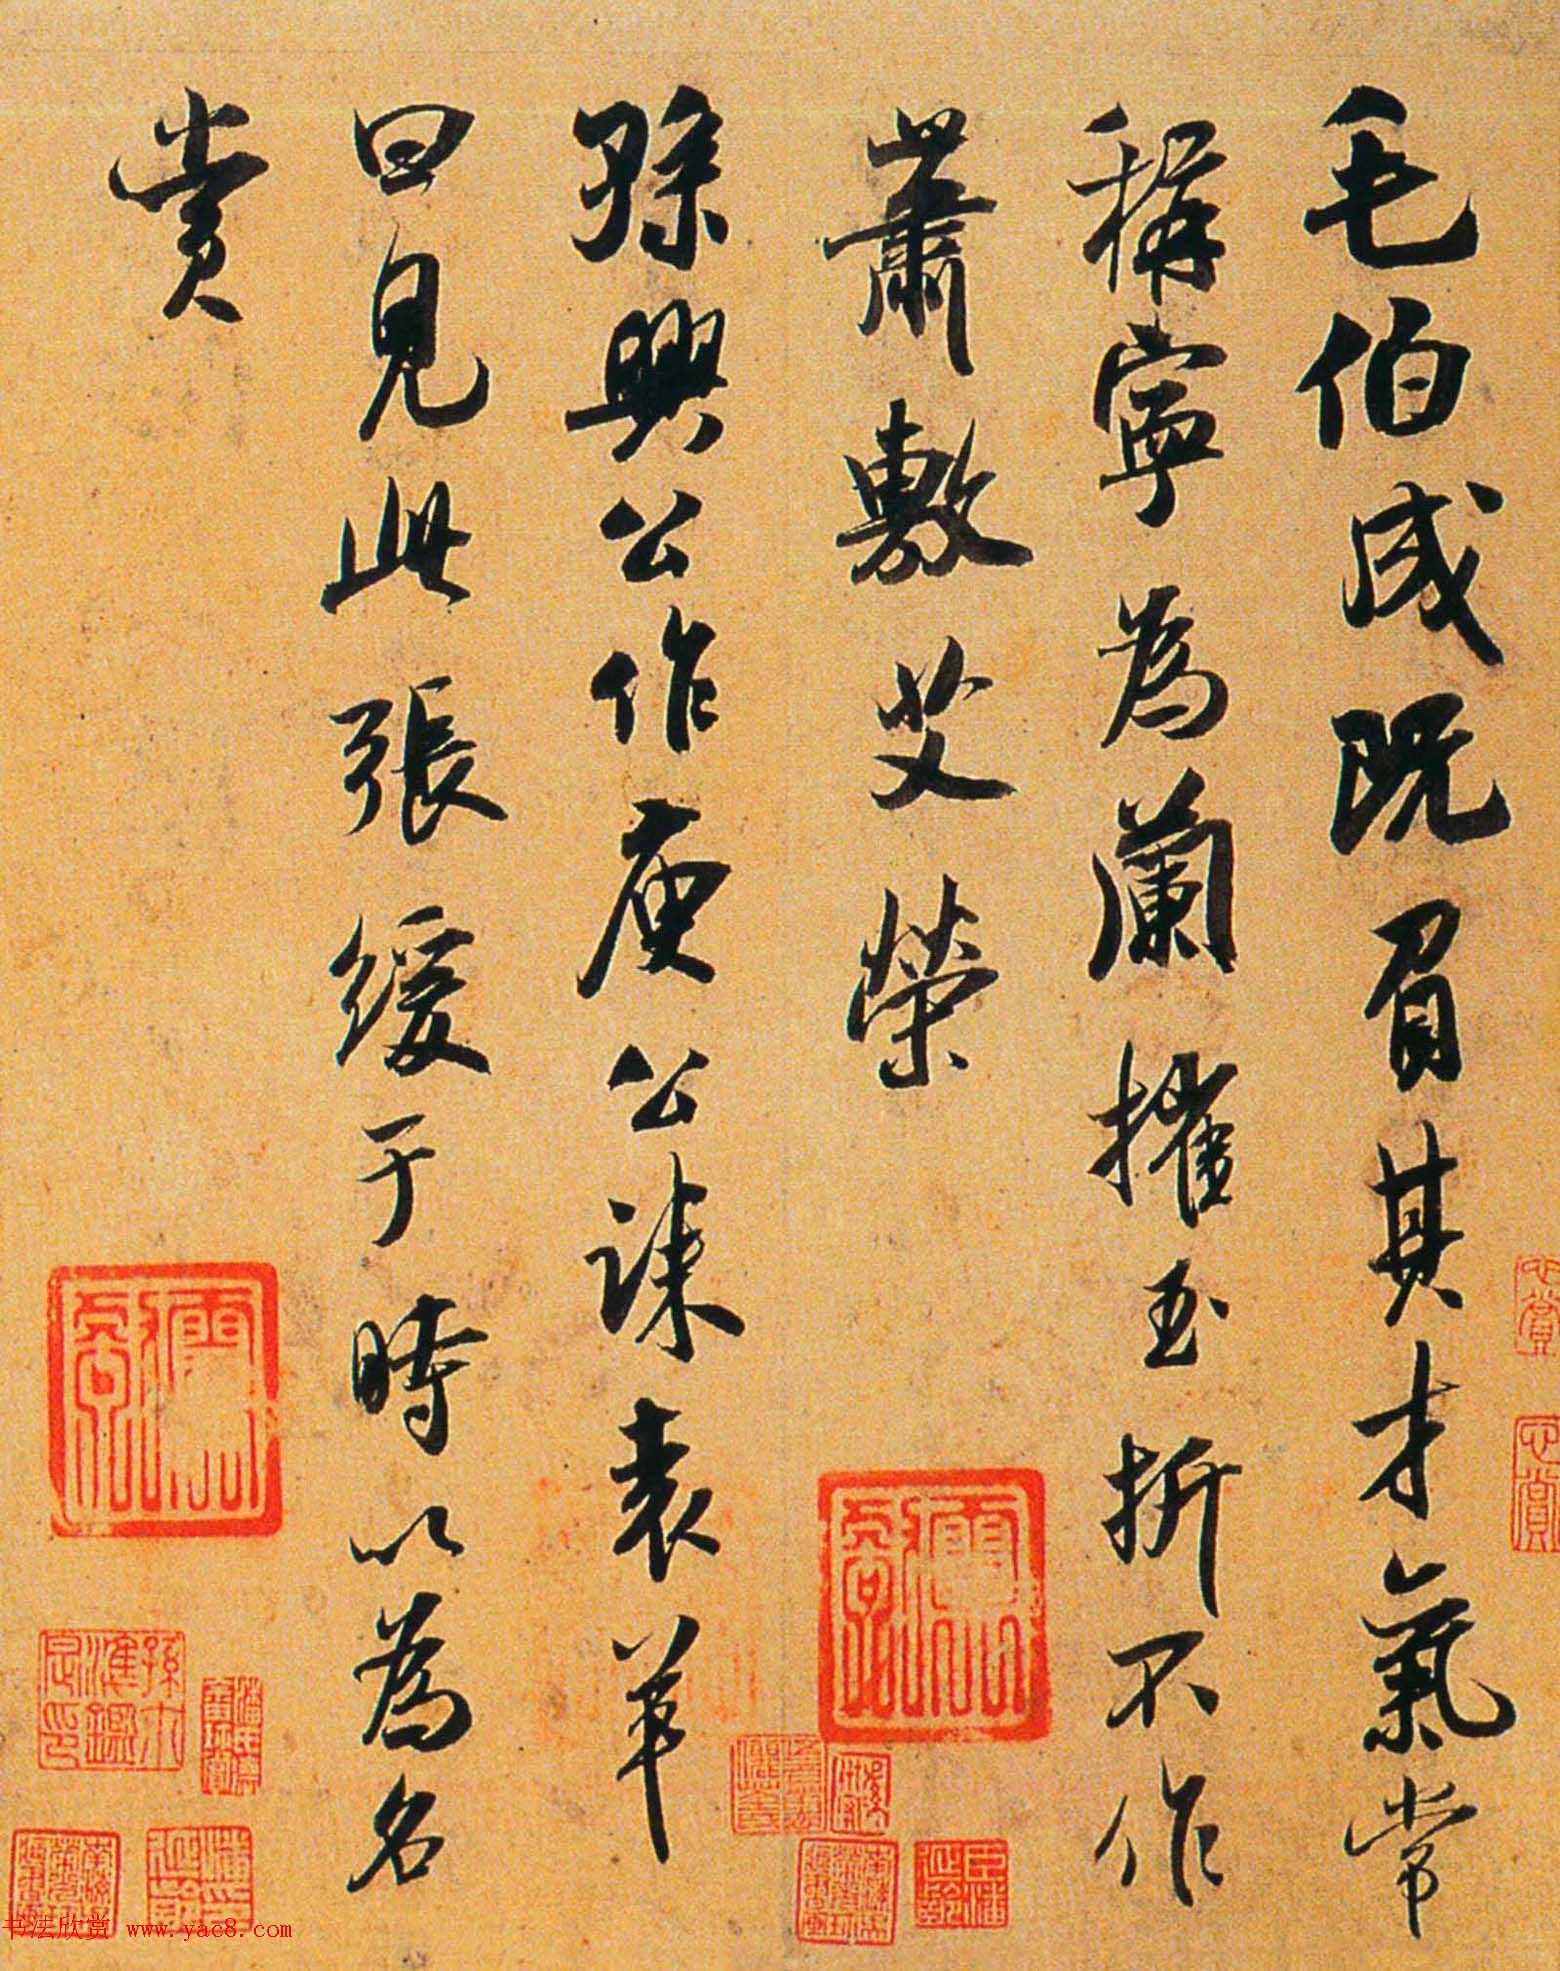 毛伯成既負其才氣常
稱寧為蘭摧玉折不作
蕭敷艾榮
孫興公作庾公誄袁羊
曰見此張緩于時以為名
賞
心賞
心賞
书法欣赏 www.yac8.com